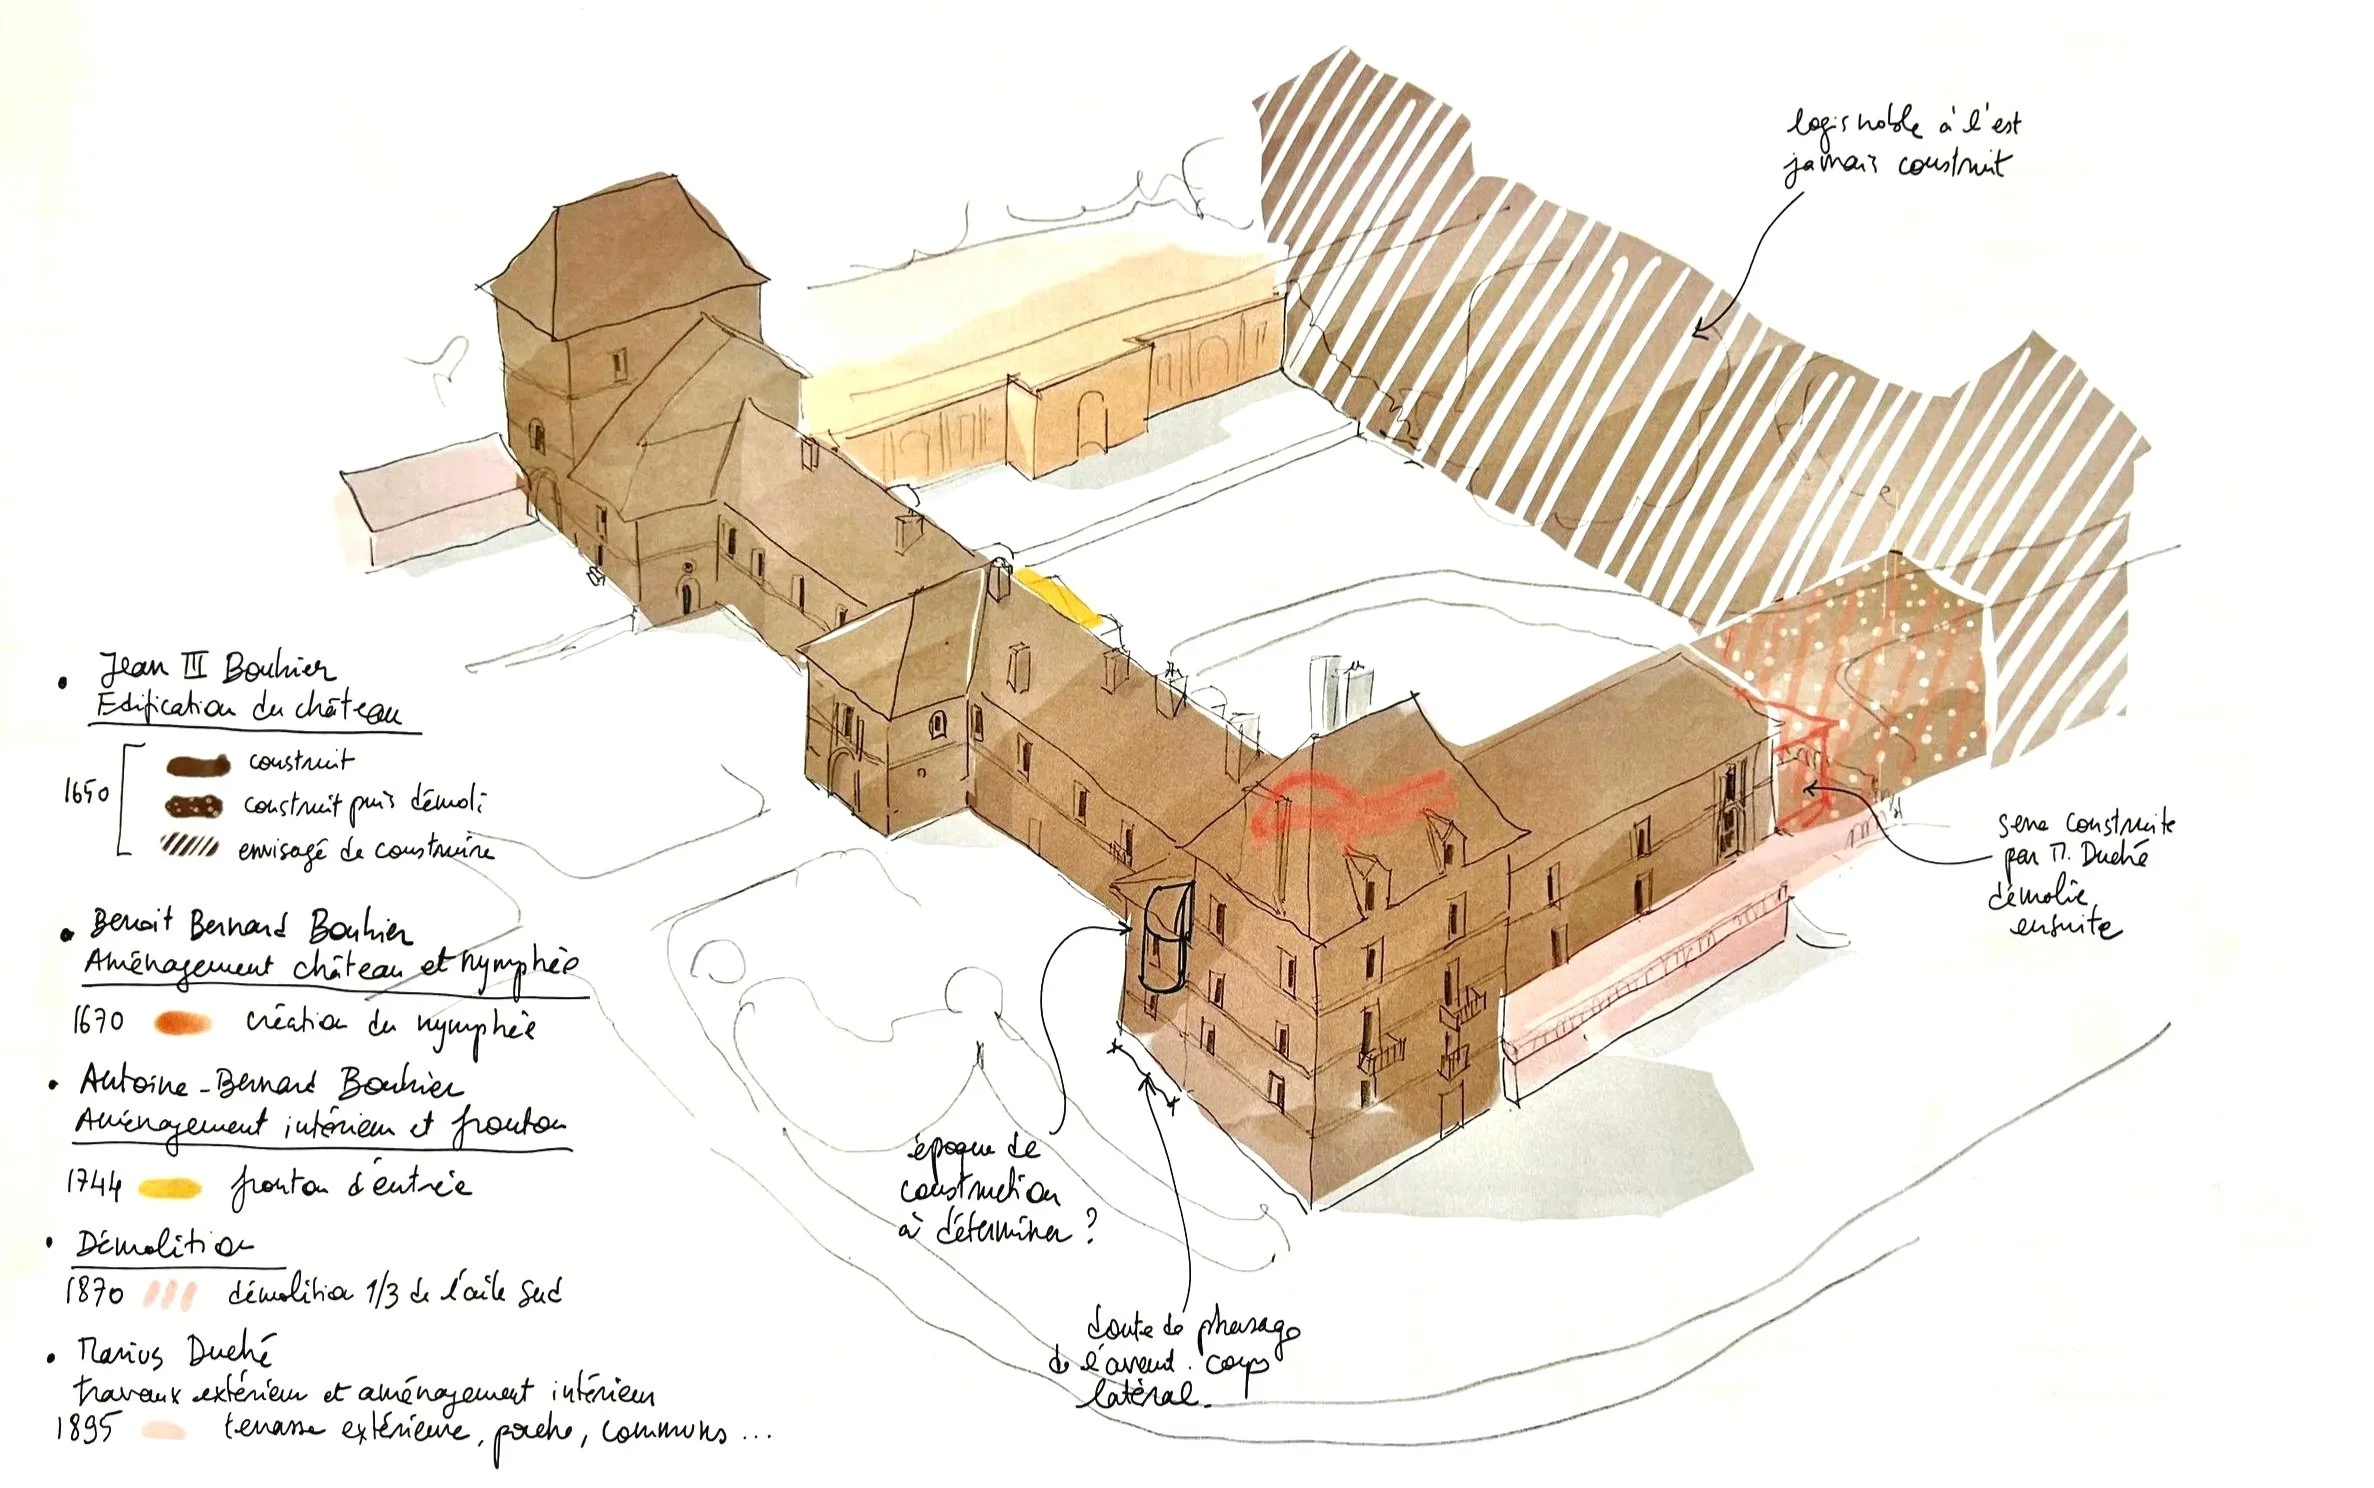 logis noble à l'est
jamais construit
• Jean III Bouhier
Edification du château
1650
construit
construit puis démoli
envisagé de construire
• Benoit Bernard Bouhier
Aménagement château et nymphée
1670 création du nymphée
• Antoine-Bernard Bouhier
Aménagement intérieur et fronton
1744 fronton d'entrée
• Démolition
1870 démolition 1/3 de l'aile Sud
• Marius Duché
travaux extérieur et aménagement intérieur
1895 terrasse extérieure, porche, communs ...
serre construite
par M. Duché
démolie
ensuite
époque de
construction
à déterminer ?
doute de phasage
de l'avant-corps
latéral.